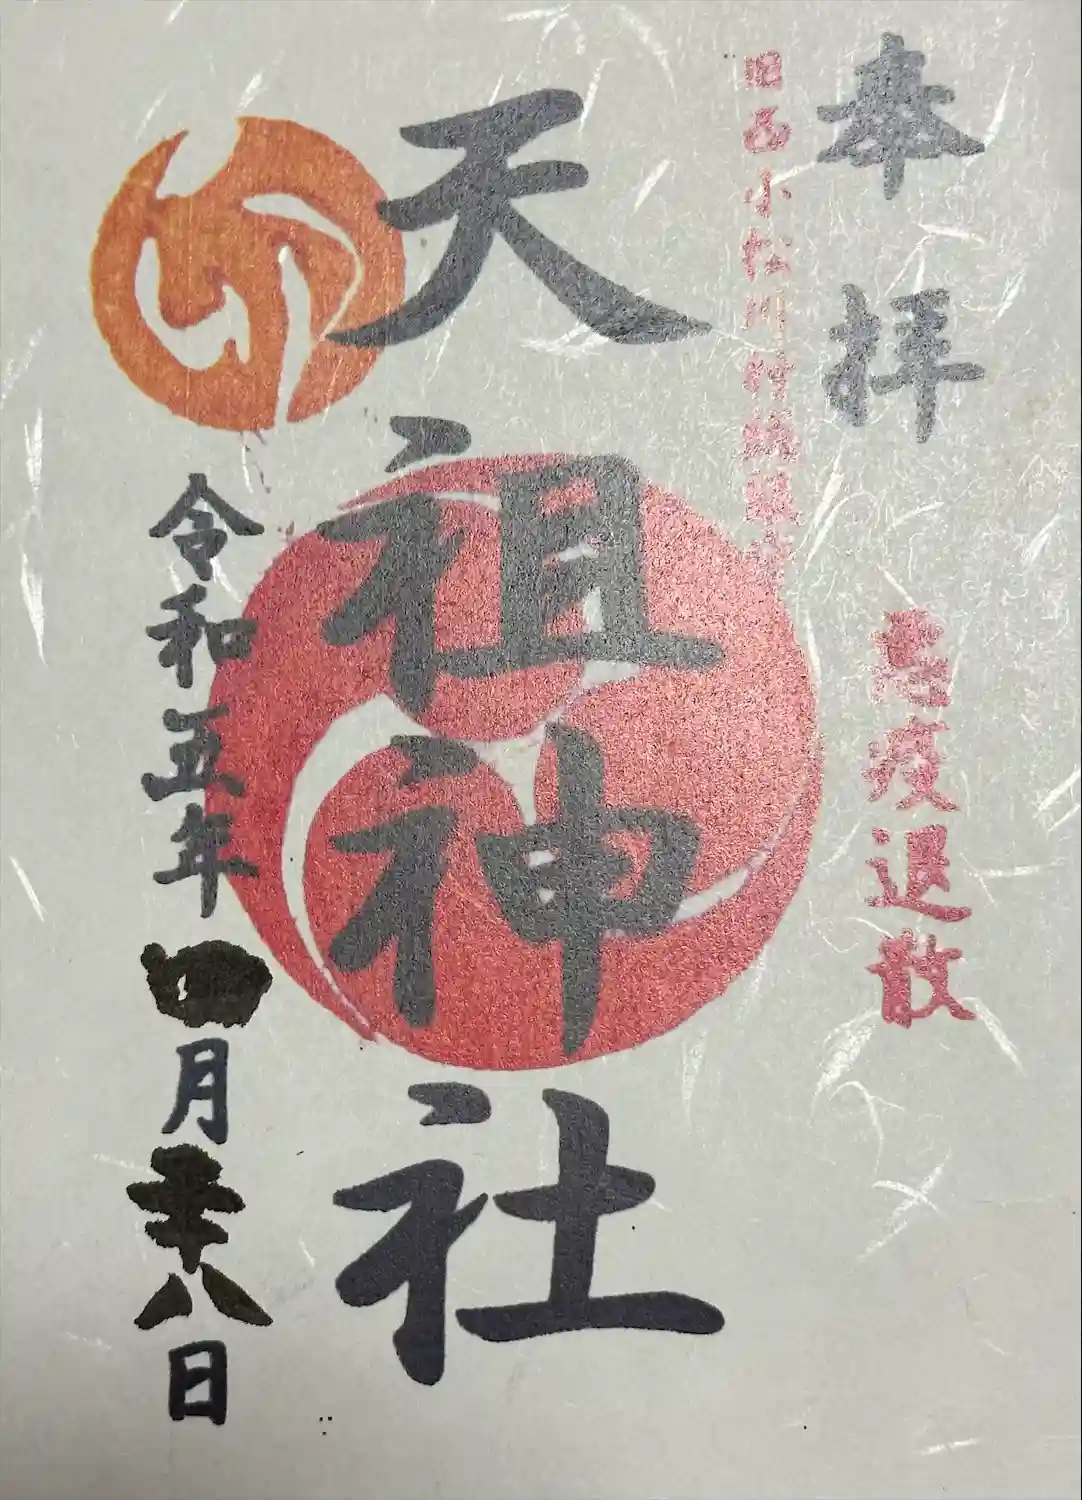 奉拝
悪疫退散
旧西小松川村総鎮守
天祖神社
令和五年四月二十八日